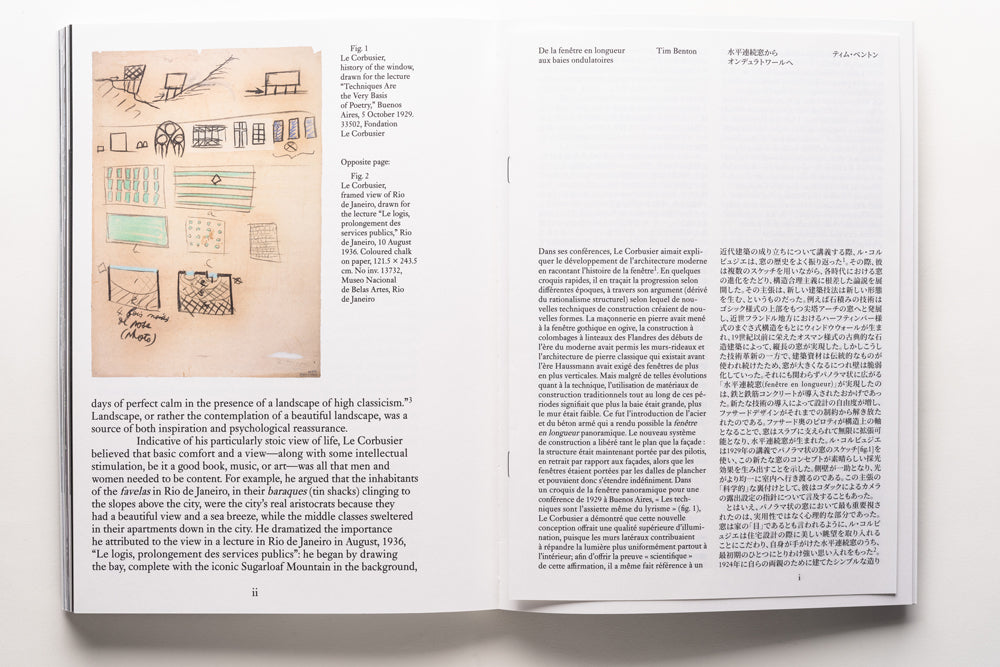 Fig. 1
Le Corbusier,
history of the window,
drawn for the lecture
“Techniques Are
the Very Basis
of Poetry,” Buenos
Aires, 5 October 1929.
33502, Fondation
Le Corbusier
Opposite page:
Fig. 2
Le Corbusier,
framed view of Rio
de Janeiro, drawn for
the lecture “Le logis,
prolongement des
services publics,” Rio
de Janeiro, 10 August
1936. Coloured chalk
on paper, 121.5 × 243.5
cm. No inv. 13732,
Museo Nacional
de Belas Artes, Rio
de Janeiro
days of perfect calm in the presence of a landscape of high classicism.”3
Landscape, or rather the contemplation of a beautiful landscape, was a
source of both inspiration and psychological reassurance.
Indicative of his particularly stoic view of life, Le Corbusier
believed that basic comfort and a view—along with some intellectual
stimulation, be it a good book, music, or art—was all that men and
women needed to be content. For example, he argued that the inhabitants
of the favelas in Rio de Janeiro, in their baraques (tin shacks) clinging to
the slopes above the city, were the city’s real aristocrats because they
had a beautiful view and a sea breeze, while the middle classes sweltered
in their apartments down in the city. He dramatized the importance
he attributed to the view in a lecture in Rio de Janeiro in August, 1936,
“Le logis, prolongement des services publics”: he began by drawing
the bay, complete with the iconic Sugarloaf Mountain in the background,
ii
De la fenêtre en longueur
aux baies ondulatoires
Tim Benton
水平連続窓から
オンデュラトワールへ
ティム・ベントン
Dans ses conférences, Le Corbusier aimait expli-
quer le développement de l’architecture moderne
en racontant l’histoire de la fenêtre1. En quelques
croquis rapides, il en traçait la progression selon
différentes époques, à travers son argument (dérivé
du rationalisme structurel) selon lequel de nou-
velles techniques de construction créaient de nou-
velles formes. La maçonnerie en pierre avait mené
à la fenêtre gothique en ogive, la construction à
colombages à linteaux des Flandres des débuts de
l’ère du moderne avait permis les murs-rideaux et
l’architecture de pierre classique qui existait avant
l’ère Haussmann avait exigé des fenêtres de plus
en plus verticales. Mais malgré de telles évolutions
quant à la technique, l’utilisation de matériaux de
construction traditionnels tout au long de ces pé-
riodes signifiait que plus la baie était grande, plus
le mur était faible. Ce fut l’introduction de l’acier
et du béton armé qui a rendu possible la fenêtre
en longueur panoramique. Le nouveau système
de construction a libéré tant le plan que la façade :
la structure était maintenant portée par des pilotis,
en retrait par rapport aux façades, alors que les
fenêtres étaient portées par les dalles de plancher
et pouvaient donc s’étendre indéfiniment. Dans
un croquis de la fenêtre panoramique pour une
conférence de 1929 à Buenos Aires, « Les tech-
niques sont l’assiette même du lyrisme » (fig. 1),
Le Corbusier a démontré que cette nouvelle
conception offrait une qualité supérieure d’illumi-
nation, puisque les murs latéraux contribuaient
à répandre la lumière plus uniformément partout à
l’intérieur; afin d’offrir la preuve « scientifique »
de cette affirmation, il a même fait référence à un
近代建築の成り立ちについて講義する際、ル・コル
ビュジエは、窓の歴史をよく振り返った1。その際、彼
は複数のスケッチを用いながら、各時代における窓
の進化をたどり、構造合理主義に根差した論説を展
開した。その主張は、新しい建築技法は新しい形態
を生む、というものだった。例えば石積みの技術は
ゴシック様式の上部をもつ尖塔アーチの窓へと発展
し、近世フランドル地方におけるハーフティンバー様
式のまぐさ式構造をもとにウィンドウウォールが生ま
れ、19世紀以前に栄えたオスマン様式の古典的な石
造建築によって、縦長の窓が実現した。しかしこうし
た技術革新の一方で、建築資材は伝統的なものが
使われ続けたため、窓が大きくなるにつれ壁は脆弱
化していった。それにも関わらずパノラマ状に広がる
「水平連続窓(fenêtre en longueur)」が実現したの
は、鉄と鉄筋コンクリートが導入されたおかげであっ
た。新たな技術の導入によって設計の自由度が増し、
ファサードデザインがそれまでの制約から解き放た
れたのである。ファサード奥のピロティが構造上の軸
となることで、窓はスラブに支えられて無限に拡張可
能となり、水平連続窓が生まれた。ル・コルビュジエ
は1929年の講義でパノラマ状の窓のスケッチ[fig.1]を
使い、この新たな窓のコンセプトが素晴らしい採光
効果を生み出すことを示した。側壁が一助となり、光
がより均一に室内へ行き渡るのである。この主張の
「科学的」な裏付けとして、彼はコダックによるカメラ
の露出設定の指針について言及することもあった。
とはいえ、パノラマ状の窓において最も重要視さ
れたのは、実用性ではなく心理的な部分であった。
窓は家の「目」であるとも言われるように、ル・コルビ
ュジエは住宅設計の際に美しい眺望を取り入れる
ことにこだわり、自身が手がけた水平連続窓のうち、
最初期のひとつにとりわけ強い思い入れをもった2。
1924年に自らの両親のために建てたシンプルな造り
i